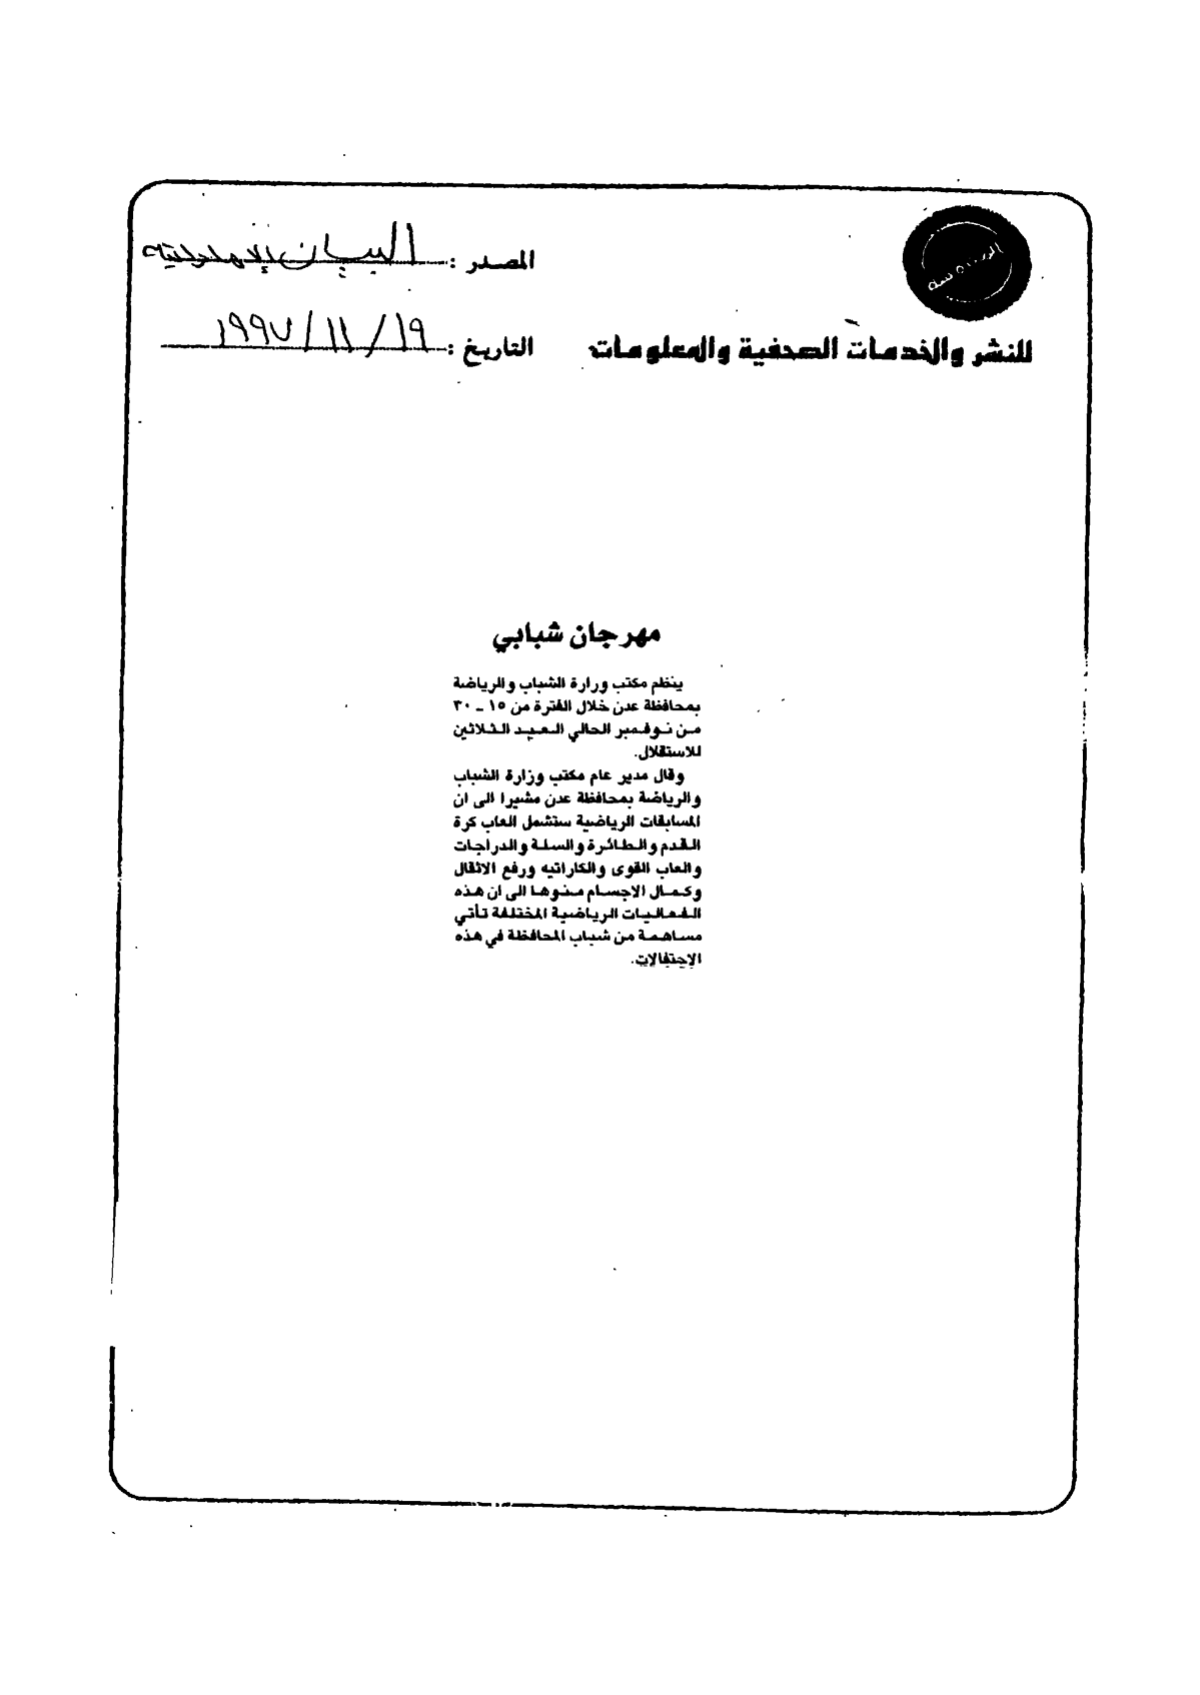 المصدر : البيان الإماراتية
للنشر والخدمات الصحفية والمعلومات
التاريخ : ١٩ / ١١ / ١٩٩٧
مهرجان شبابي
ينظم مكتب ورارة الشباب والرياضة
بمحافظة عدن خلال الفترة من ١٥ ـ ٣٠
من نوفمبر الحالي العيد الثلاثين
للاستقلال.
وقال مدير عام مكتب وزارة الشباب
والرياضة بمحافظة عدن مشيرا الى ان
المسابقات الرياضية ستشمل العاب كرة
القدم والطائرة والسلة والدراجات
والعاب القوى والكاراتيه ورفع الاثقال
وكمال الاجسام منوها الى ان هذه
الفعاليات الرياضية المختلفة تأتي
مساهمة من شباب المحافظة في هذه
الاحتفالات.